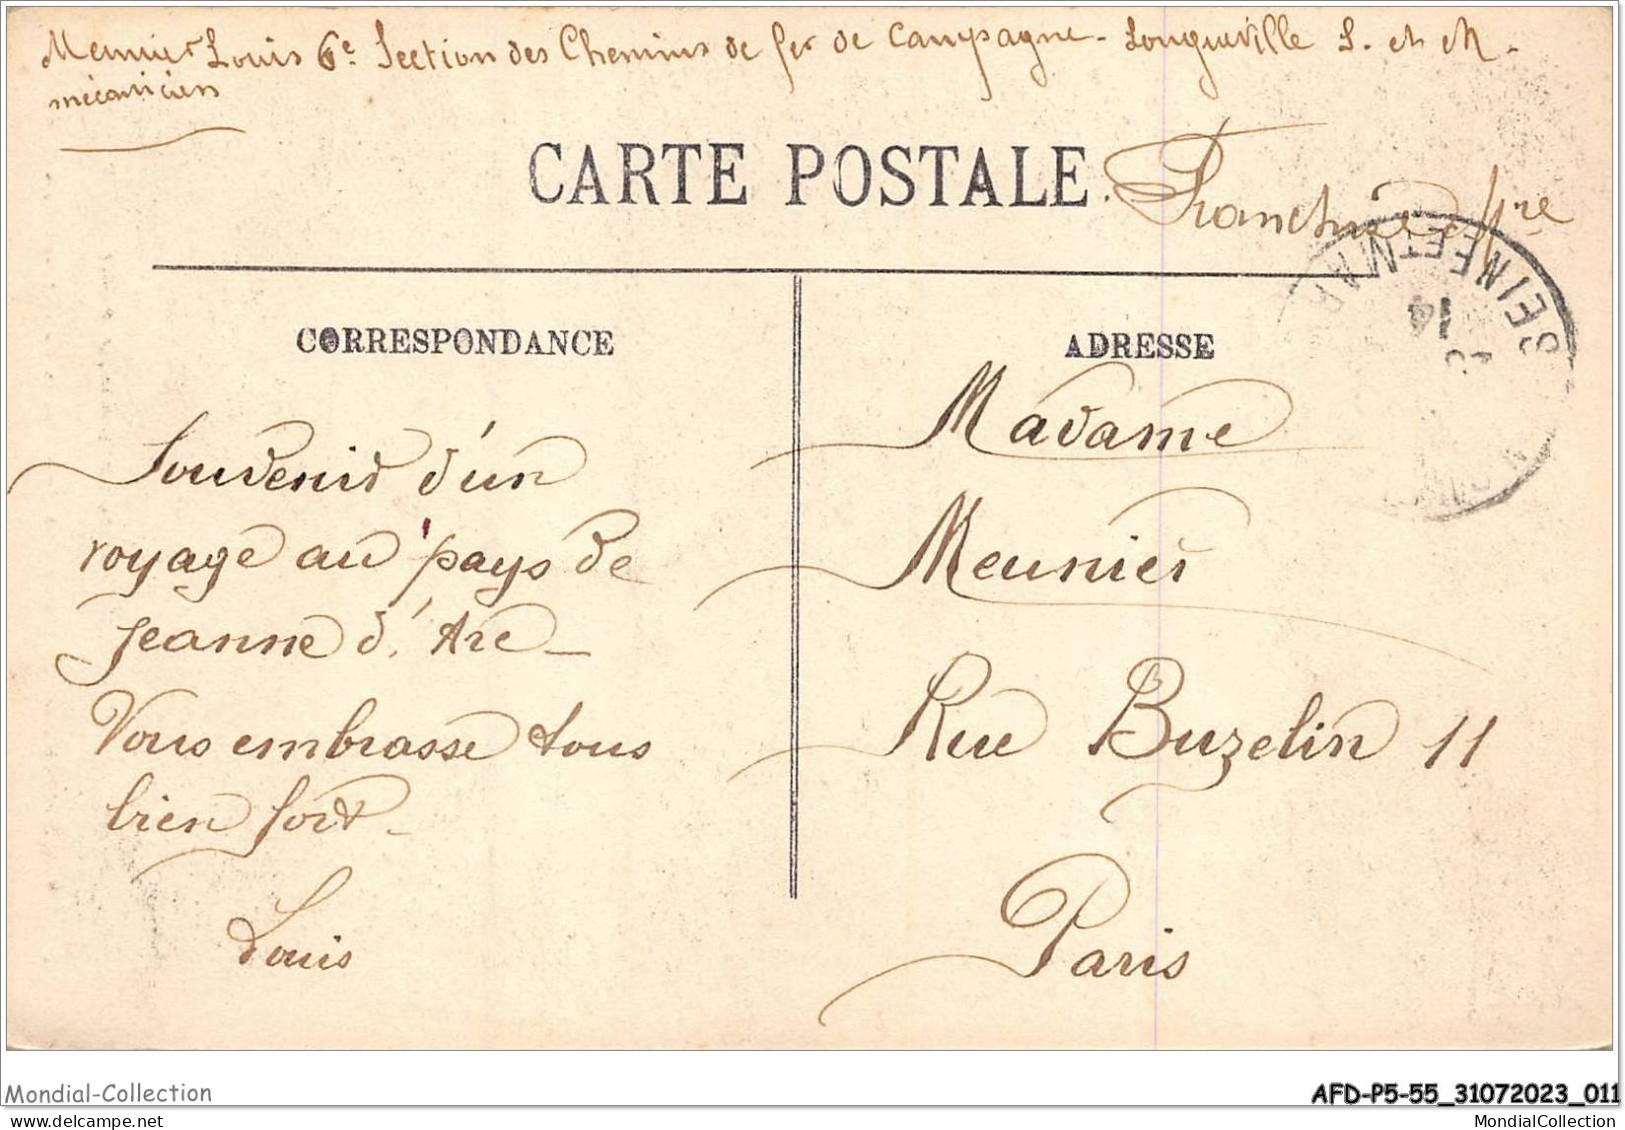 Meunier Louis 6e Section des Chemins de fer de Campagne - Longueville S. et M -
mécanicien
CARTE POSTALE
Franchise
SEINE ET MAR
14
CORRESPONDANCE
ADRESSE
Souvenir d'un
voyage au pays de
Jeanne d'Arc -
Vous embrasse tous
bien fort -
Louis
Madame
Meunier
Rue Buzelin 11
Paris
Mondial-Collection
AFD-P5-55_31072023_011
MondialCollection